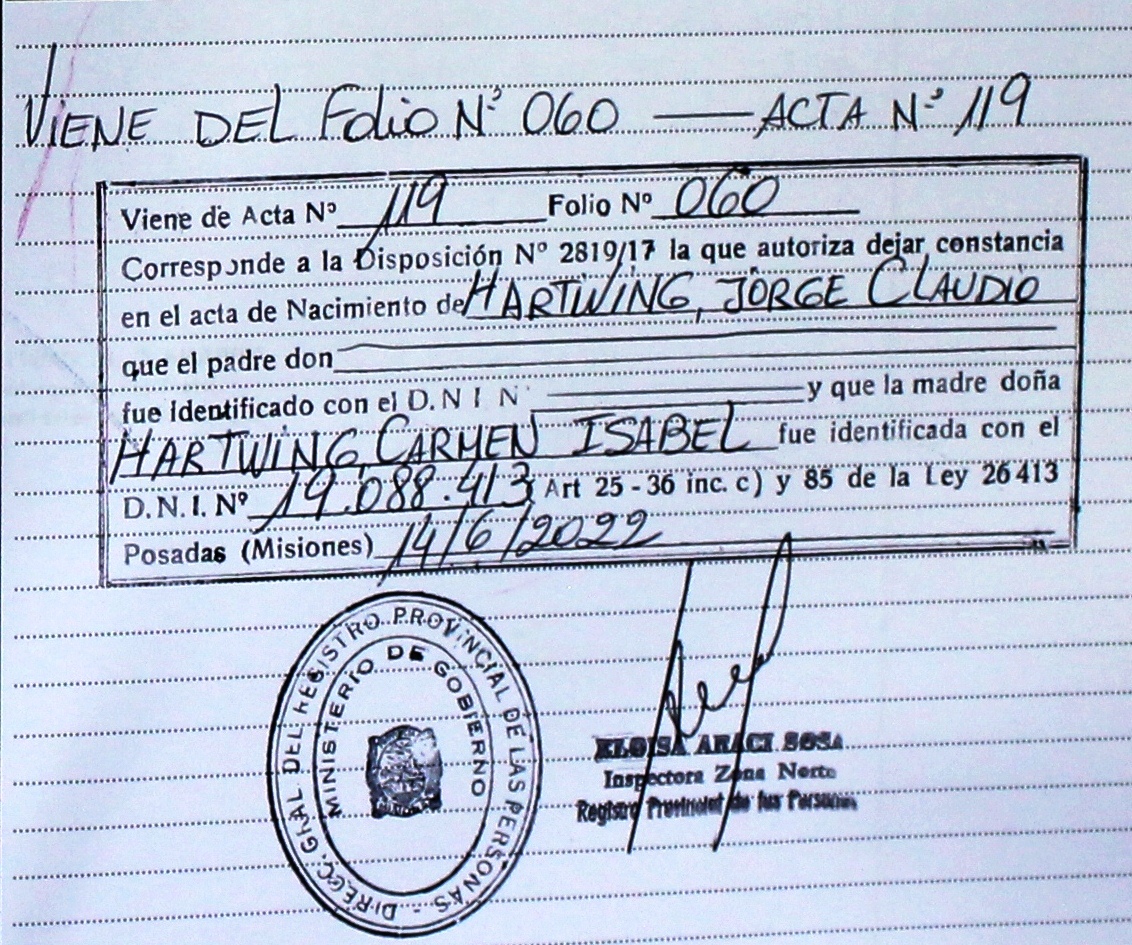 VIENE DEL Folio Nº 060 — ACTA Nº 119
Viene de Acta Nº 119 Folio Nº 060
Corresponde a la Disposición Nº 2819/17 la que autoriza dejar constancia
en el acta de Nacimiento de HARTWING, JORGE CLAUDIO
que el padre don
fue identificado con el D.N I N y que la madre doña
HARTWING, CARMEN ISABEL fue identificada con el
D.N.I. Nº 19.088.413 Art 25 - 36 inc. c) y 85 de la Ley 26413
Posadas (Misiones) 14/6/2022
DIRECC. GRAL DEL REGISTRO PROVINCIAL DE LAS PERSONAS -
MINISTERIO DE GOBIERNO
ELOISA ARACI SOSA
Inspectora Zona Norte
Registro Provincial de las Personas